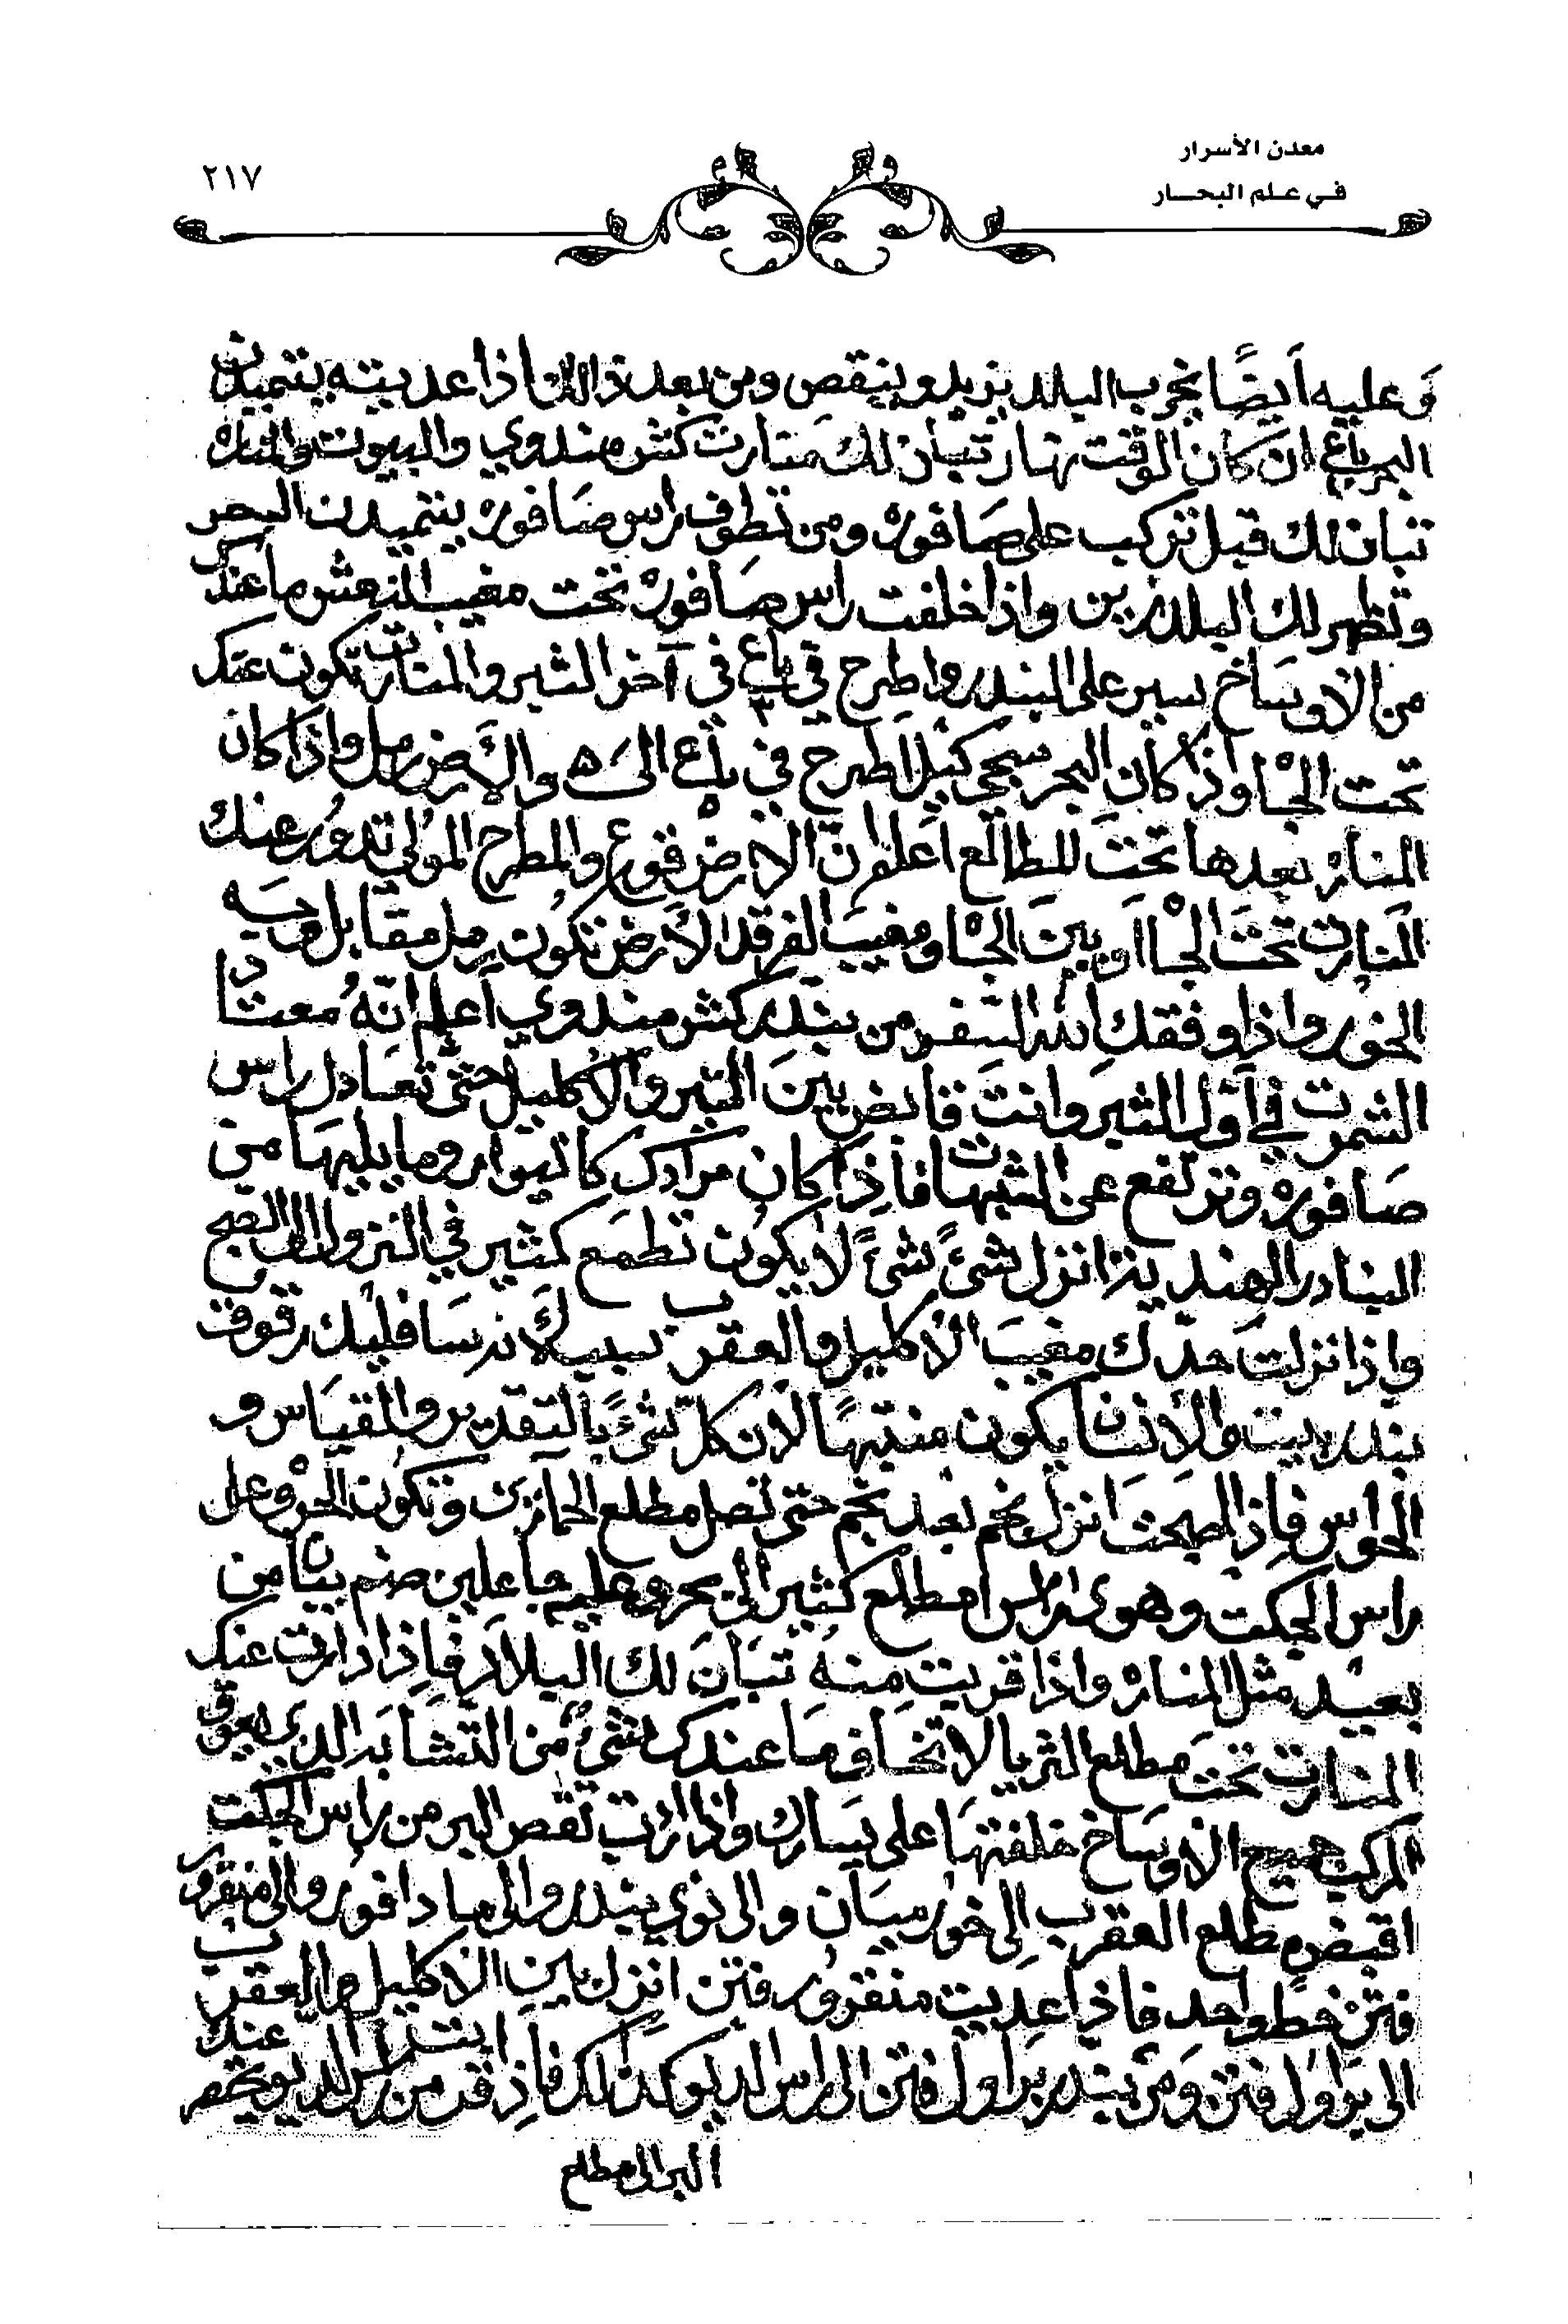 معدن الأسرار
في علم البحار
٢١٧
وَعليه اَيضًا يخرب البلد يزيد وينقص ومن بعد ذالك اذا عديته يتميدن
البر باع ان كان الوقت نهار تبان لك منارت كش مندوي والبيوت والمناره
تبان لك قبل تركب على صَافوره ومن تطوف راس صَافوره يتميدن البحر
وتظهر لك البلد زين واذا خلفت راس صَافوره تحت مغيب النعش ما عندك
من الاوساخ سير على البندر واطرح في باع ٣ في آخر الثير والمنارت تكون عندك
تحت الجاه واذا كان البحر سجي كثير اطرح في باع ٥ الى ه والاَرض رمل واذا كان
المناره بعدها تحت للطالع اعلم ان الارض قوع والمطرح المولي تدور عنك
المنارت تحت الجاه او بين الجاه ومغيب الفرقد الاَرض تكون رمل مقابل وجه
الخور واذا وفقك الله السفر من بندر كش مندوي اَعلم انّهُ معتاد
الشمرت في اوّل الثير وانت قابض بين التير والاكليل حتى تعادل راس
صَافوره وترتفع عن الشبهات فاذا كان مرادك كاتيوار وما يليها من
البنادر الهندية انزل شئً شئً لا يكون تطمع كثير في النزول الى الصبح
واذا نزلت حدك مغيب الاكليل والعقرب نسافليك رقوق
بندر بيت والانسان يكون منتبهًا لاَن كل شئً بالتقدير والقياس و
الحواس فاذا اصبحت انزل نجم بعد نجم حتى تصل مطلع الحمارين وتكون الجزو على
راس الجكت وهوى راس مطلع كثير الى بحر وعليه جاعلين صنم بيان من
بعيد مثل المناره واذا قربت منهُ تبَان لك البلاد فاِذا دارت عندك
المنارت تحت مطلع الثريا لا تخاف ما عندك شئٌ من التشابه الذي يعوق
المركب جميع الاوساخ خلفتها على يسارك واذا اردت تقص البر من راس الجكت
اقبض مطلع العقرب الى خور ميان والى نوي بندر والى مادافور والى منقرور
فتن خط واحد فاذا عديت منقرور فتن انزل بين الاكليل والعقرب
الى براول فتن ومن بندر براول فتن الى راس الديو كذلك فاذا قدمت راس الديو عندك
البر الى مطلع